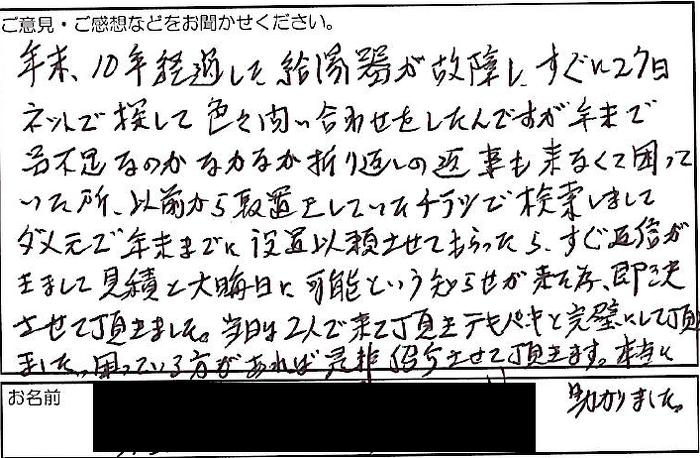 ご意見・ご感想などをお聞かせください。
年末、10年経過した給湯器が故障し、すぐに27日
ネットで探して色々問い合わせをしたんですが年末で
不足なのかなかなか折り返しの返事も来なくて困って
いた所、以前から取置をしていたチラシで検索しまして
ダメ元で年末までに設置以頼させてもらったら、すぐ返信が
きまして見積と大晦日に可能という知らせが来た為、即決
させて頂きました。当日は2人で来て頂きテキパキと完璧にして頂き
ました。困っている方があれば是非紹介させて頂きます。本当に
助かりました。
お名前